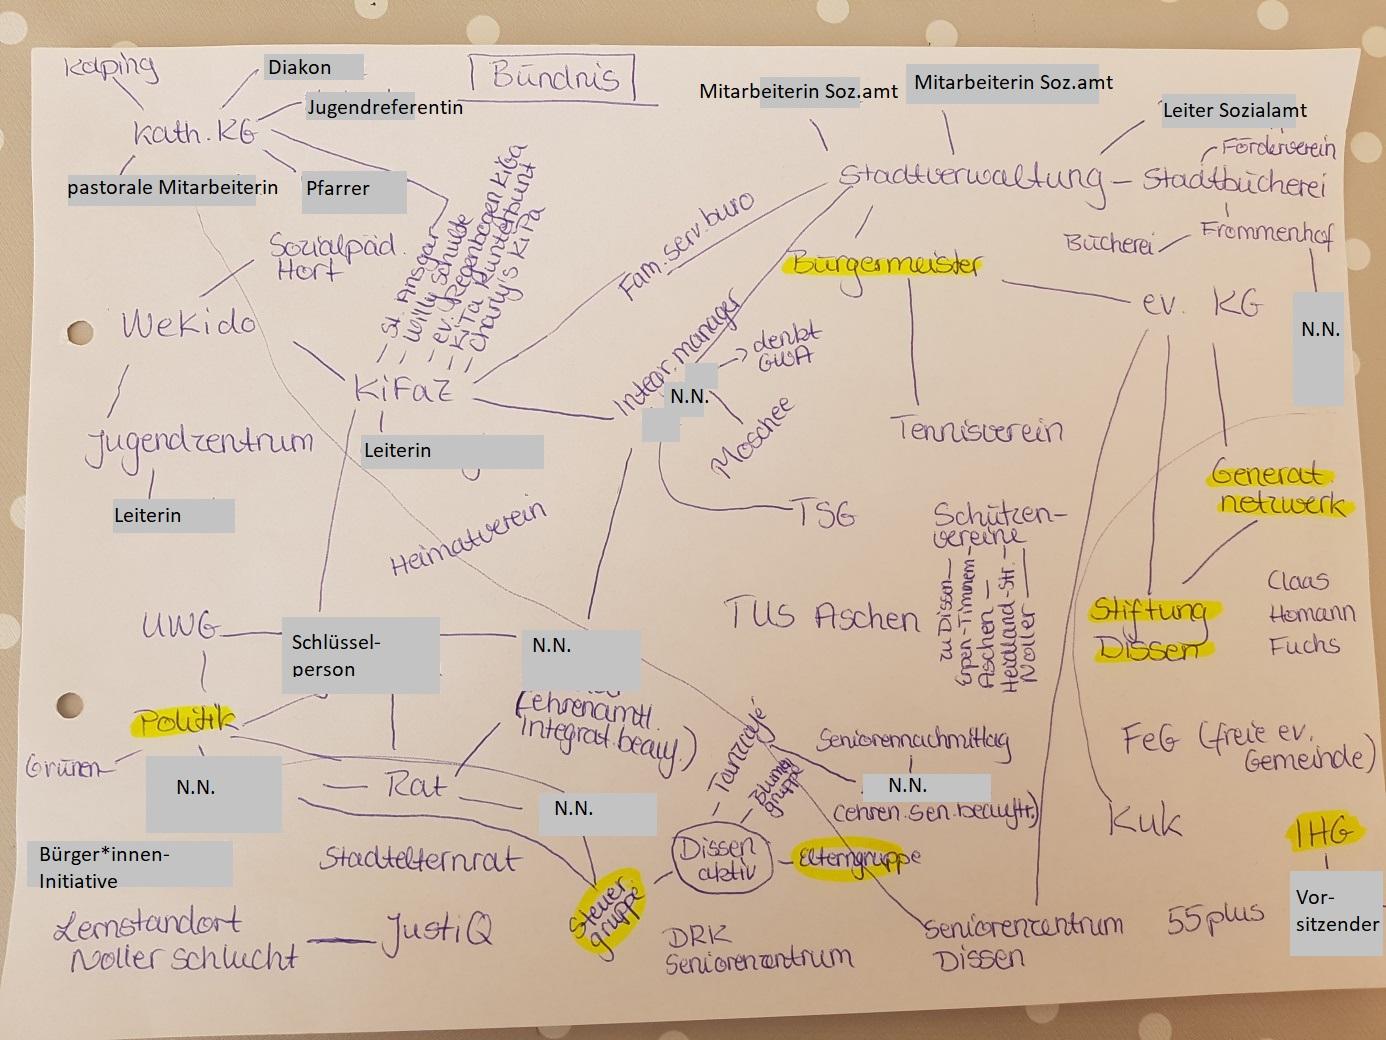 Kolping
Diakon
Bündnis
Jugendreferentin
kath. KG
pastorale Mitarbeiterin
Pfarrer
Mitarbeiterin Soz.amt
Mitarbeiterin Soz.amt
Leiter Sozialamt
Förderverein
Stadtverwaltung – Stadtbücherei
Bücherei
Frommenhof
N.N.
Sozialpäd.
Hort
St. Ansgar
Willy Schulte
ev. Regenbogen KiGa
KiTa Kunterbunt
Charly's KiPa
Fam.serv.büro
Bürgermeister
ev. KG
WeKido
KiFaZ
Leiterin
Integr.manager
N.N.
denkt
GWA
Moschee
Tennisverein
Jugendzentrum
Leiterin
Heimatverein
TSG
Schützen-
vereine
zu Dissen
Erpen-Timmern
Aschen
Heidland-Str.
Noller
Generat.
netzwerk
UWG
Schlüssel-
person
N.N.
(ehrenamtl.
Integrat.beauf.)
TUS Aschen
Stiftung
Dissen
Claas
Homann
Fuchs
Politik
Grünen
N.N.
Rat
N.N.
Tanzcafé
Blumen
gruppe
Seniorennachmittag
N.N.
(ehren.Sen.beauftr.)
FeG (freie ev.
Gemeinde)
Kuk
IHG
Vor-
sitzender
Bürger*innen-
Initiative
Stadtelternrat
Dissen
aktiv
Elterngruppe
Steuer.
gruppe
Lernstandort
Noller Schlucht
JustiQ
DRK
Seniorenzentrum
Seniorenzentrum
Dissen
55plus